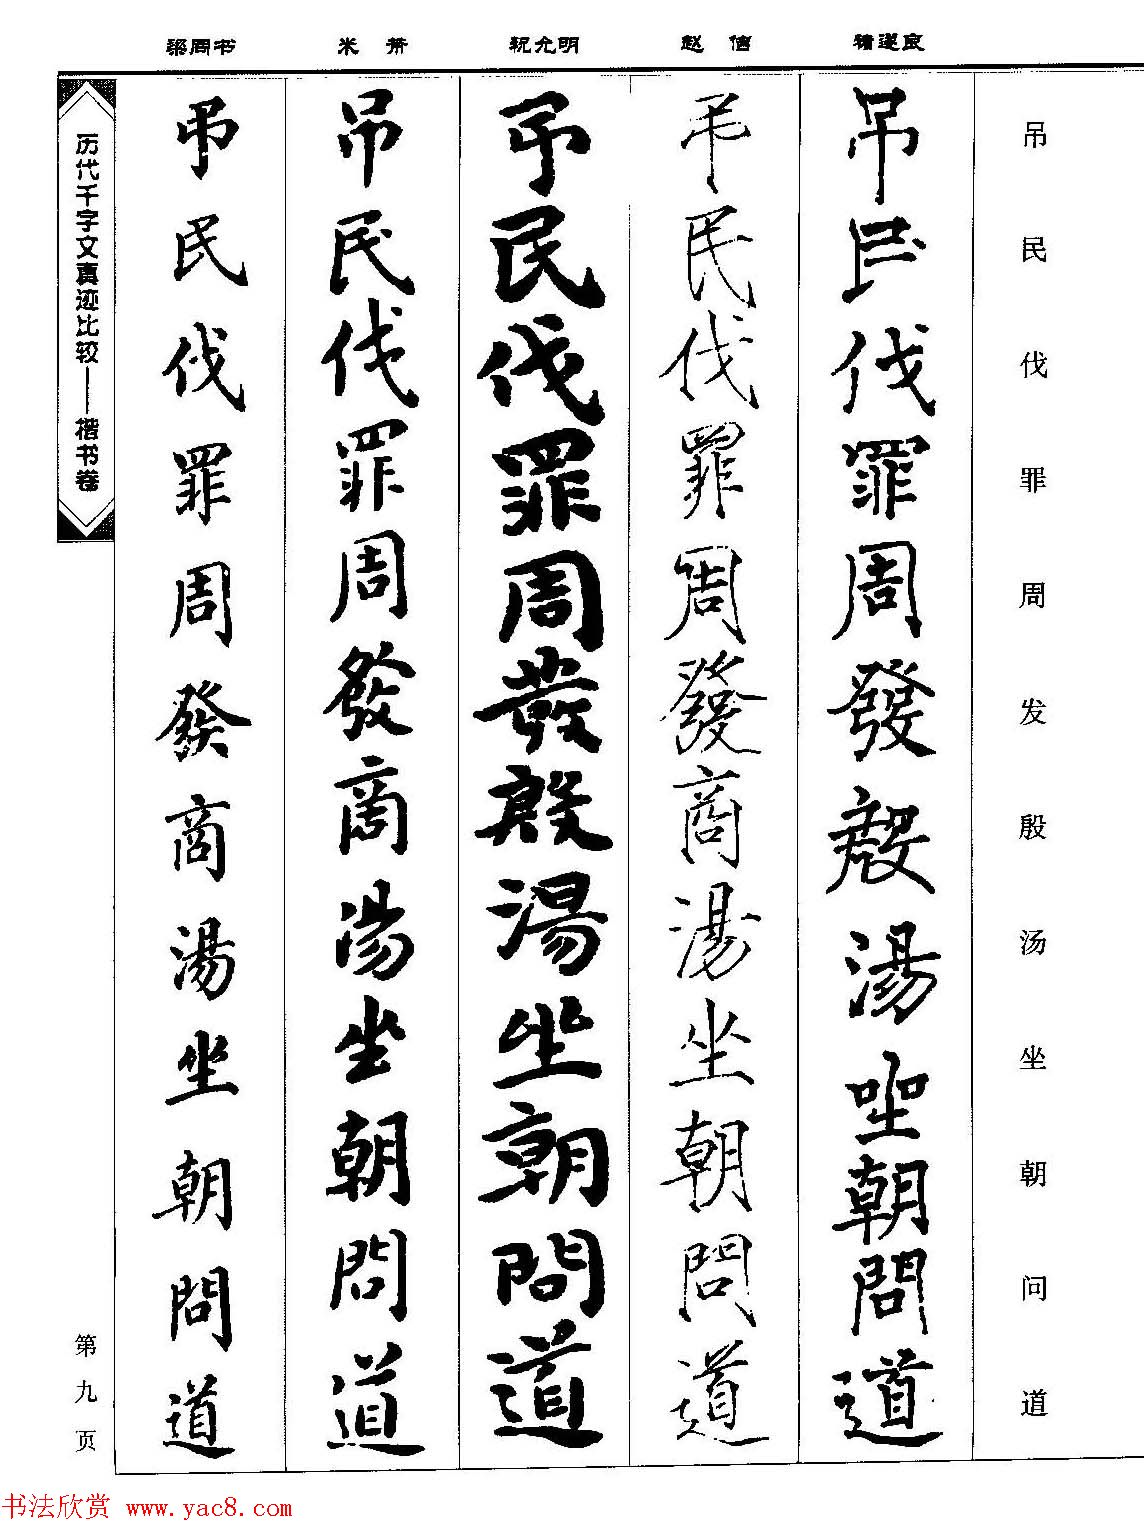 吊民伐罪周发殷汤坐朝问道
褚遂良
吊民伐罪周發殷湯坐朝問道
赵 佶
弔民伐罪周發商湯坐朝問道
祝允明
弔民伐罪周發殷湯坐朝問道
米 芾
吊民伐罪周發商湯坐朝問道
梁同书
弔民伐罪周發商湯坐朝問道
历代千字文真迹比较——楷书卷
第九页
书法欣赏 www.yac8.com